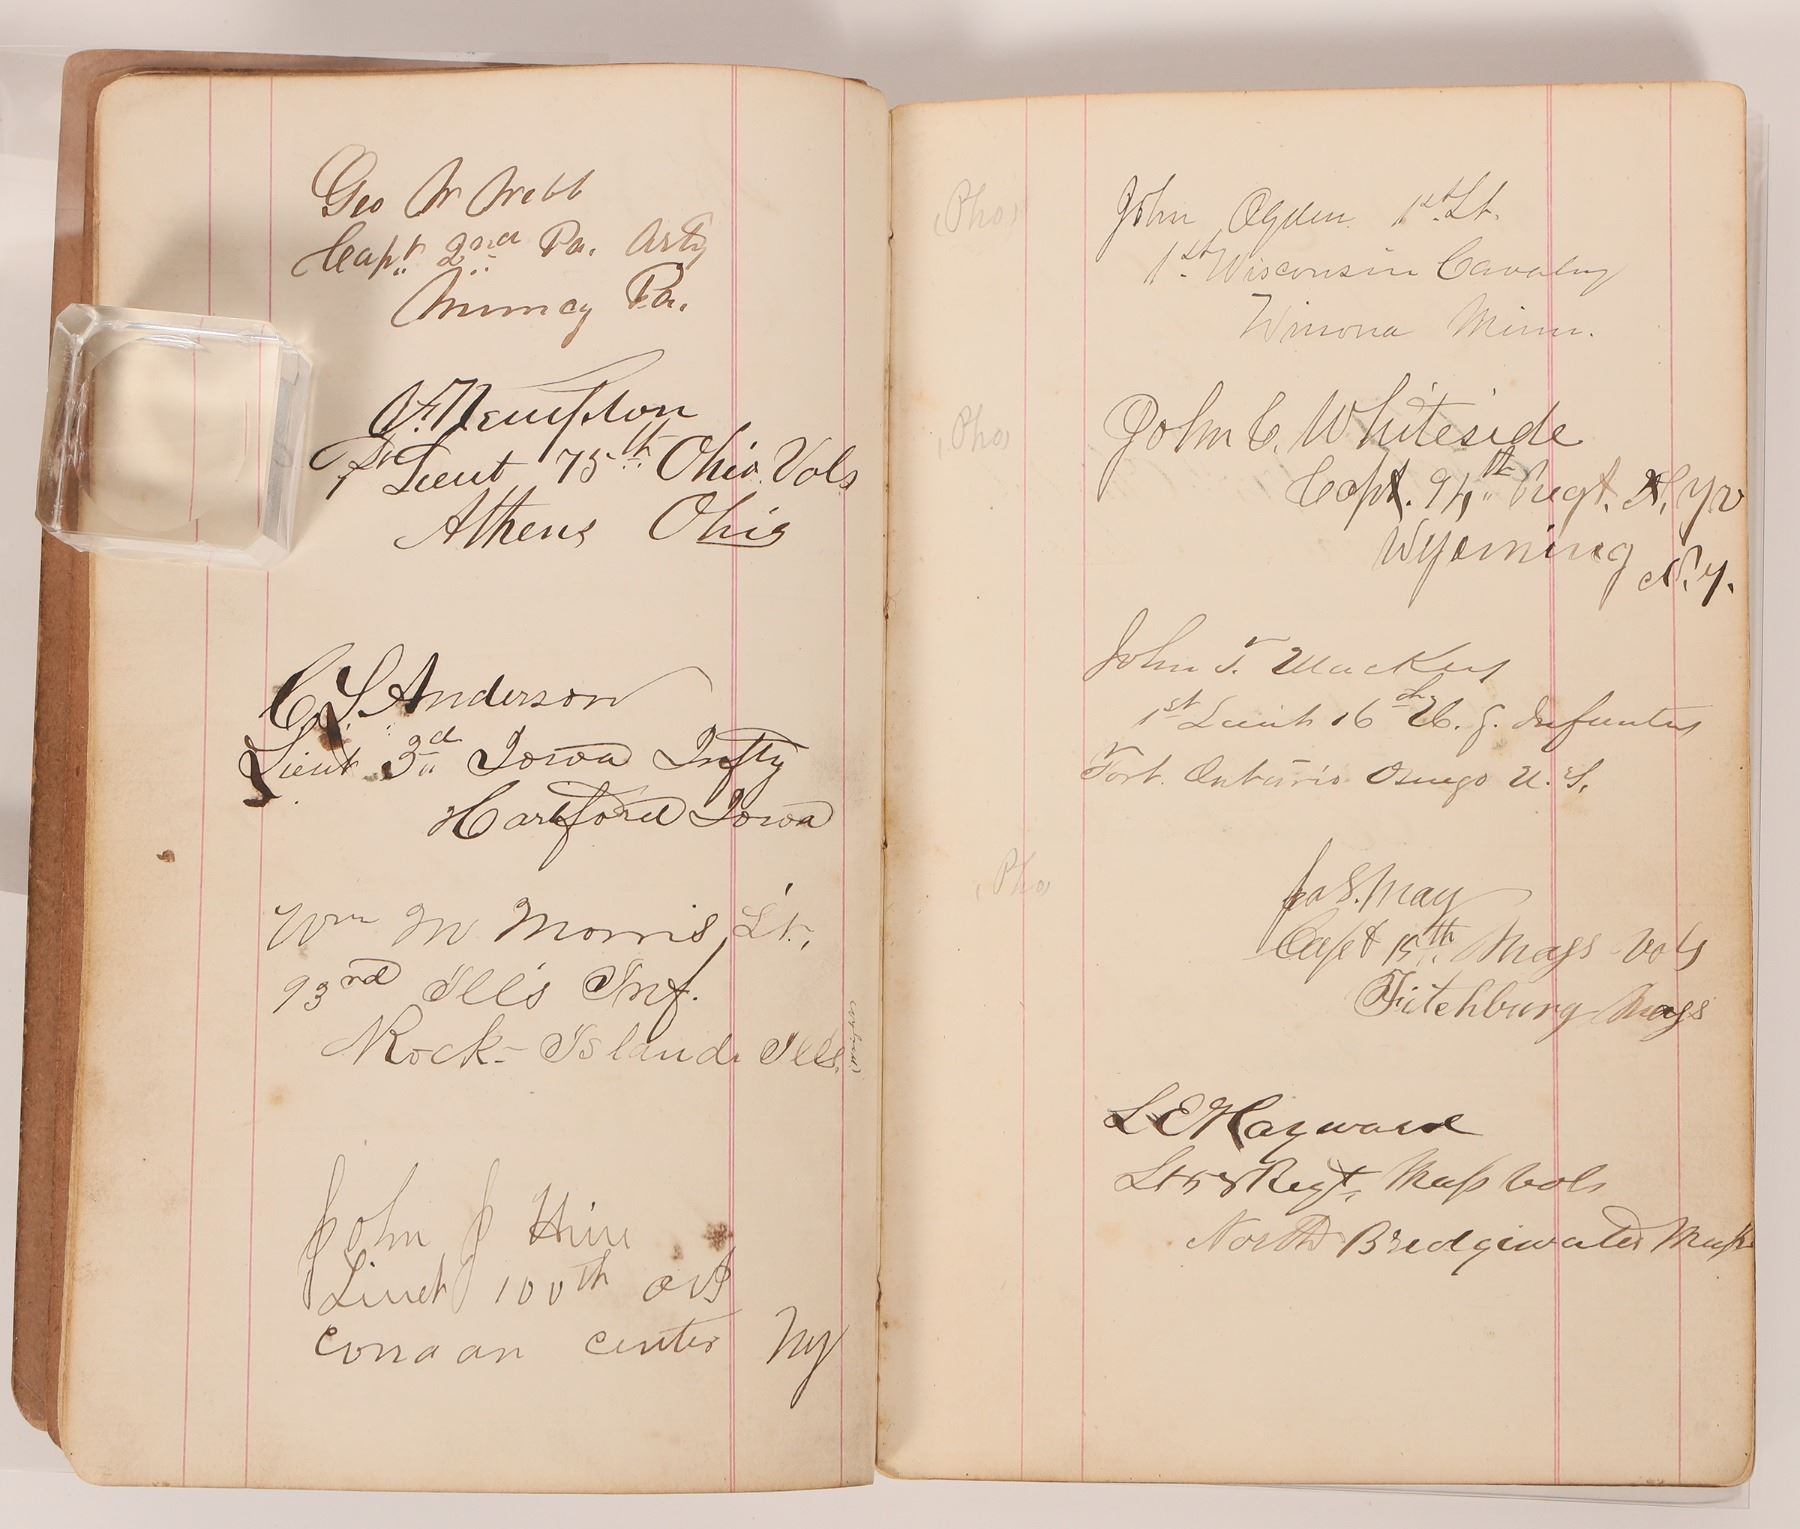 Geo W Webb
Capt 2nd Pa. Arty
Muncy Pa.
Lieut 75th Ohio Vols
Athens Ohio
C S. Anderson
Lieut 3d Iowa Infty
Hartford Iowa
Wm M Morris, Lt.
93rd Ills Inf.
Rock-Island Ills.
John J Hine
Liuet 100th OVI
conaan center NY
(Pho)
John Ogden 1st. Lt.
1st. Wisconsin Cavalry
Winona Minn.
(Pho)
John C. Whiteside
Capt. 94th Regt. N.Y.V
Wyoming N.Y.
John T. Mackey
1st Lieut 16th U. S. Infantry
Fort. Ontario Oswego U. S.
(Pho)
Jas. May
Capt 15th Mass Vols
Fitchburg Mass
L E Hayward
Regt, Mass Vols
North Bridgewater Mass